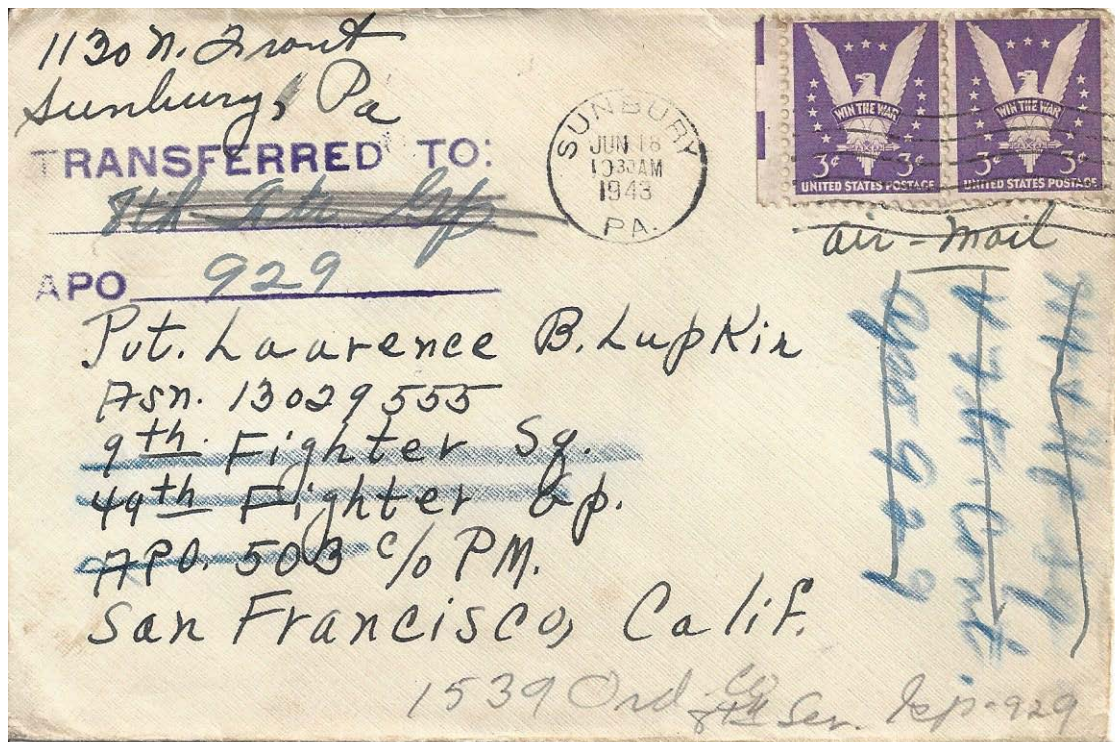 1130 N. Front
Sunbury, Pa
TRANSFERRED TO:
8th Gp
APO 929
SUNBURY
JUN 18
1030AM
1943
PA.
WIN THE WAR
3¢ 3¢
UNITED STATES POSTAGE
WIN THE WAR
3¢ 3¢
UNITED STATES POSTAGE
air-mail
Pvt. Laurence B. Lupkin
Asn. 13029555
9th. Fighter Sq.
49th Fighter Gp.
APO. 503 c/o PM.
San Francisco, Calif.
Apo 929
1539 Ord Co
8th Ser. Gp-929